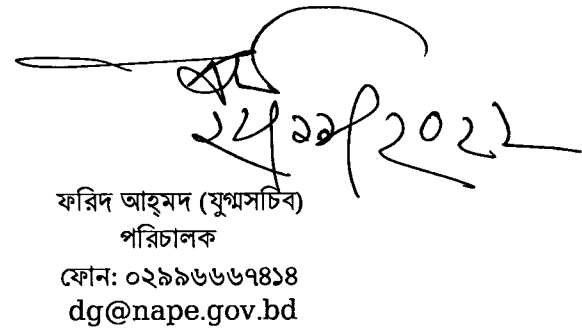 ফরিদ আহ্‌মদ (যুগ্মসচিব)
পরিচালক
ফোন: ০২৯৯৬৬৬৭৪১৪
dg@nape.gov.bd